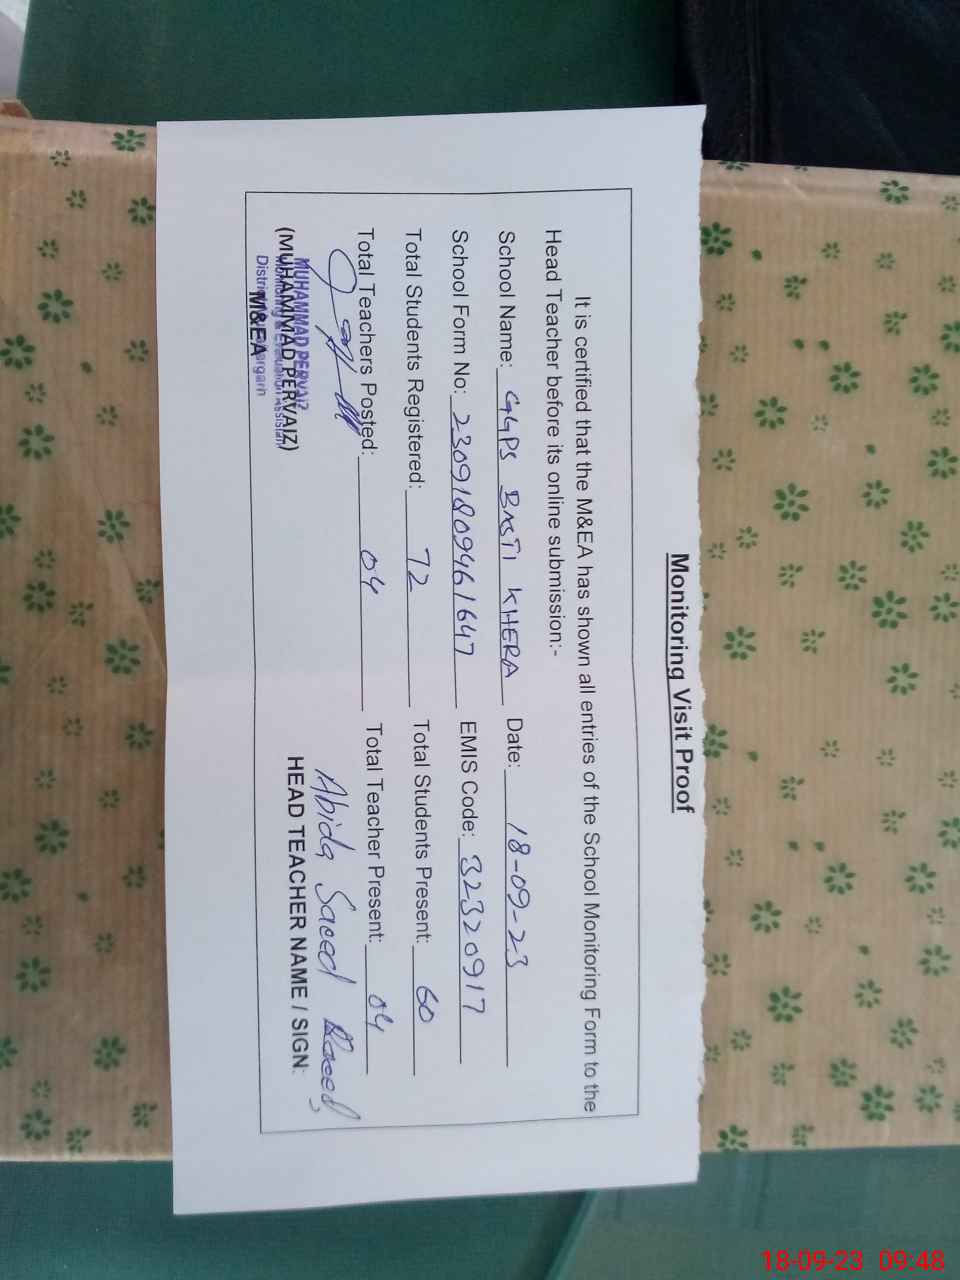 Monitoring Visit Proof
It is certified that the M&EA has shown all entries of the School Monitoring Form to the
Head Teacher before its online submission:-
School Name: GGPS BASTI KHERA Date: 18-09-23
School Form No: 23091809461647 EMIS Code: 32320917
Total Students Registered: 72 Total Students Present: 60
Total Teachers Posted: 04 Total Teacher Present: 04
Abida Saeed
MUHAMMAD PERVAIZ
Monitoring & Evaluation Assistant
(MUHAMMAD PERVAIZ) HEAD TEACHER NAME / SIGN:
M&EA
18-09-23 09:48